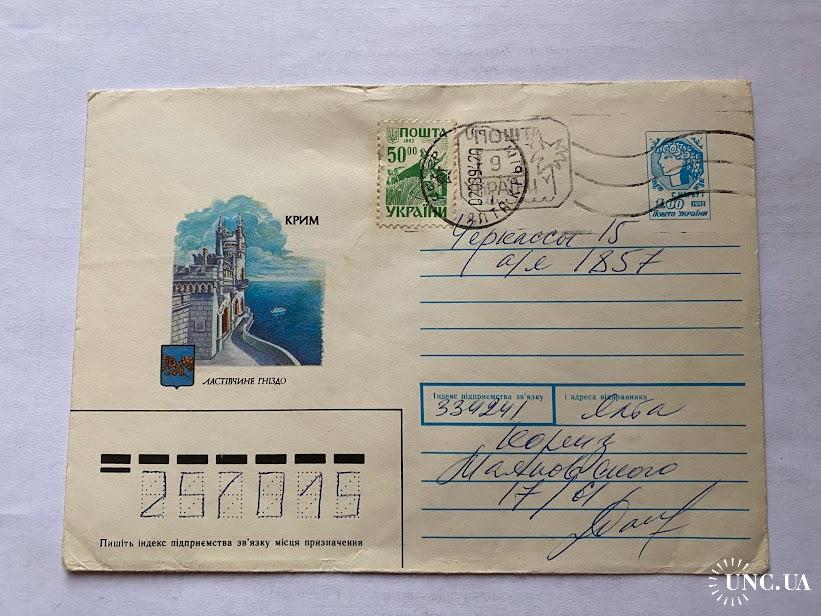 ПОШТА
1993
50.00
УКРАЇНИ
ПОШТА
9
УКРАЇНИ
020394-20
ЯЛТА КРЫМ
2.00
1992
ПОШТА УКРАЇНИ
КРИМ
Черкассы 15
а/я 1857
ЛАСТІВЧИНЕ ГНІЗДО
Індекс підприємства зв'язку
і адреса відправника
334241
Ялта
Кореиз
17/61
257015
Пишіть індекс підприємства зв'язку місця призначення
UNC.UA